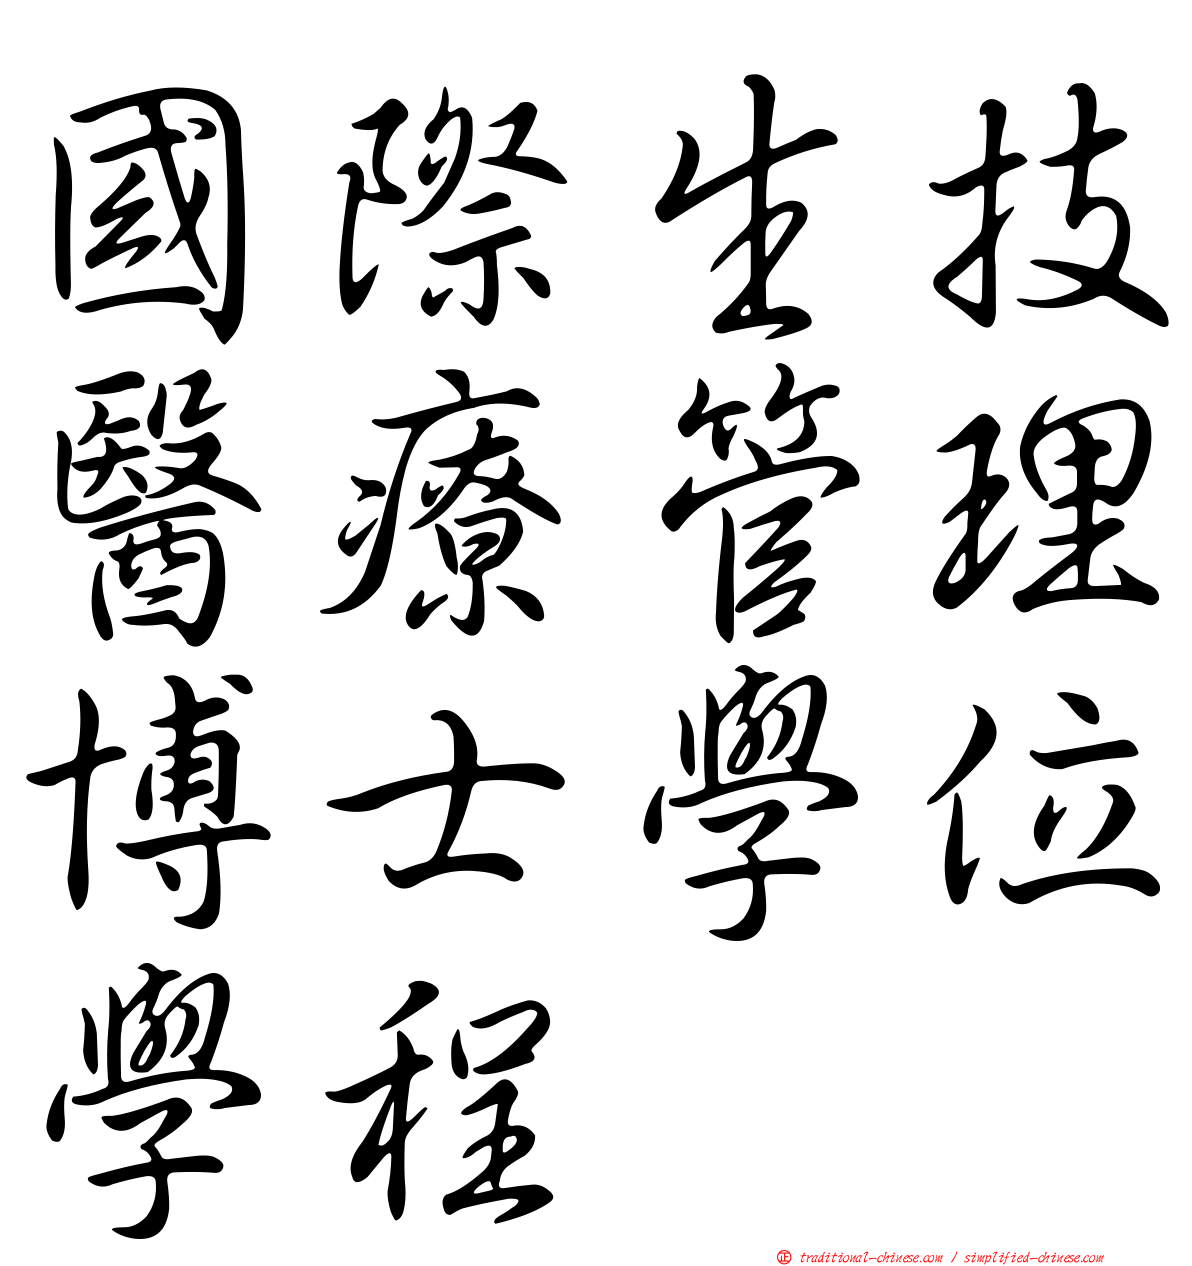 國際生技
醫療管理
博士學位
學程
㊣ traditional-chinese.com / simplified-chinese.com